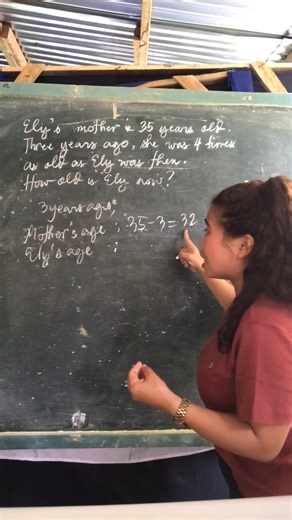 Ely's mother is 35 years old.
Three years ago, she was 4 times
as old as Ely was then.
How old is Ely now?
3 years ago:
Mother's age : 35-3=32
Ely's age :